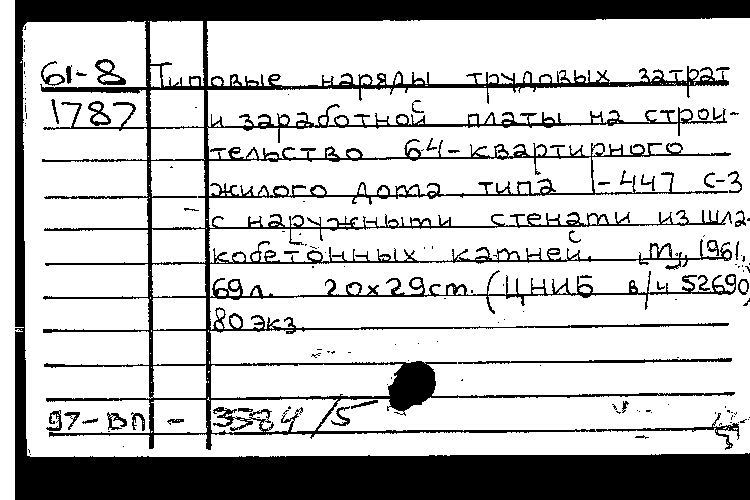 61-8 Типовые наряды трудовых затрат
1787 и заработной платы на строи-
тельство 64-квартирного
жилого дома типа I-447 С-3
с наружными стенами из шла-
кобетонных камней. "М", 1961.
69л. 20х29см. (ЦНИБ в/ч 52690)
80 экз.
97-ВП - 3584/5